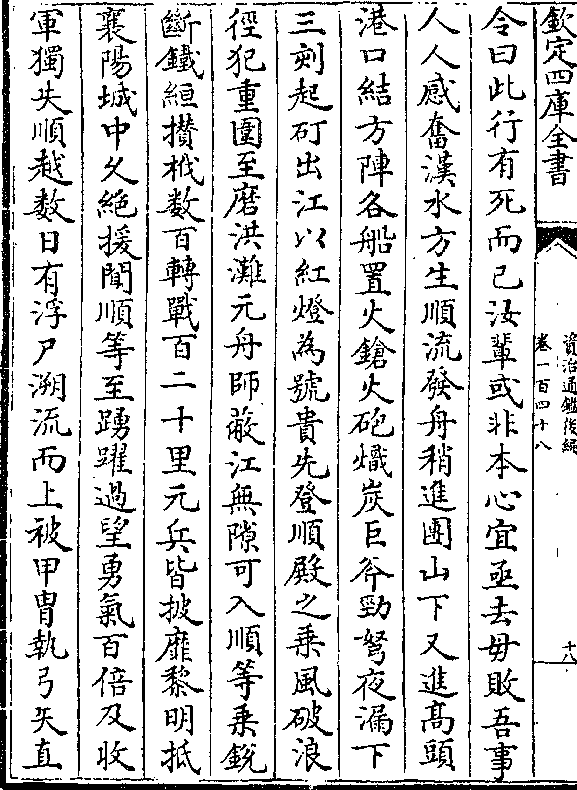 欽定四庫全書
資治通鑑後編
卷一百四十八
十八
令曰此行有死而已汝輩或非本心宜亟去毋敗吾事
人人感奮漢水方生順流發舟稍進團山下又進髙頭
港口結方陣各船置火鎗火砲熾炭巨斧勁弩夜漏下
三刻起矴出江以紅燈為號貴先登順殿之乗風破浪
徑犯重圍至磨洪灘元舟師蔽江無隙可入順等乗銳
斷鐵絙攅杙数百轉戰百二十里元兵皆披靡黎明抵
襄陽城中久絕援聞順等至踴躍過望勇氣百倍及收
軍獨失順越数日有浮尸溯流而上被甲胄執弓矢直